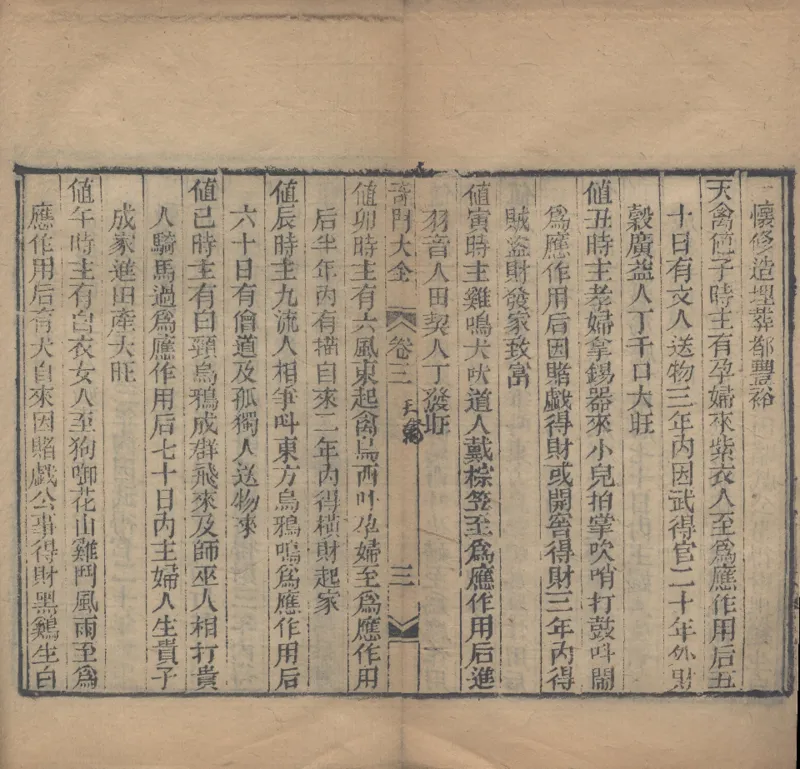 懷修造埋葬都豐裕
天禽値子時主有孕婦來紫衣人至爲應作用后五
十日有文人送物三年內因武得官二十年外財
穀廣益人丁千口大旺
値丑時主孝婦拿錫器來小兒拍掌吹哨打鼓呌鬧
爲應作用后因賭戱得財或開窖得財三年內得
賊盜財發家致富
値寅時主雞鳴犬吠道人戴棕笠至爲應作用后進
羽音人田契人丁發旺
奇門大全 卷三 天禽 三
値卯時主有六風東起禽鳥西叶孕婦至爲應作用
后半年內有猫自來二年內得橫財起家
値辰時主九流人相爭呌東方烏鴉鳴爲應作用后
六十日有僧道及孤獨人送物來
値巳時主有白頸烏鴉成群飛來及師巫人相打貴
人騎馬過爲應作用后七十日內主婦人生貴子
成家進田產大旺
値午時主有白衣女人至狗啣花山雞鬥風雨至爲
應作用后有犬自來因賭戱公事得財黑鷄生白